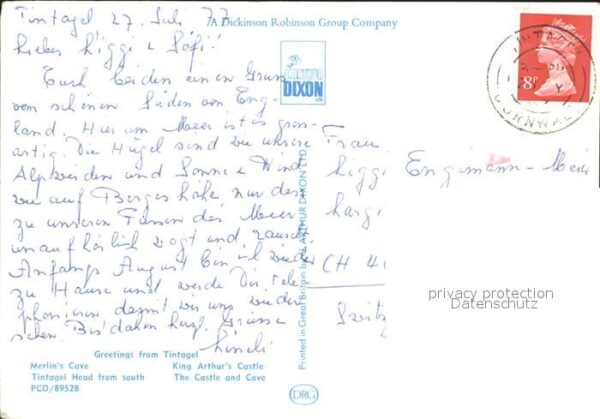 Tintagel 27. Juli 77
A Dickinson Robinson Group Company
Lieber Higgi & Söfi!!
Euch beiden einen Gruss
vom schönen Süden von Eng-
land. Hier am Meer ist es gross-
artig. Die Hügel sind wie unsere
Alpweiden und Sonne & Wind
wie auf Berges höhe, nur dass
zu unseren Füssen das Meer
unaufhörlich wogt und rauscht.
Anfangs August bin ich wieder
zu Hause und werde Dir tele-
phonieren damit wir uns wieder
sehen. Bis dahin herzl. Grüsse
ARTHUR
DIXON
LTD
8P
TINTAGEL
CORNWALL
Frau
Higgi Engimann-Meie
CH 4
privacy protection
Datenschutz
Printed in Great Britain by J. ARTHUR DIXON LTD.
Greetings from Tintagel
Merlin's Cave King Arthur's Castle
Tintagel Head from south The Castle and Cove
PCO/89528
DRG